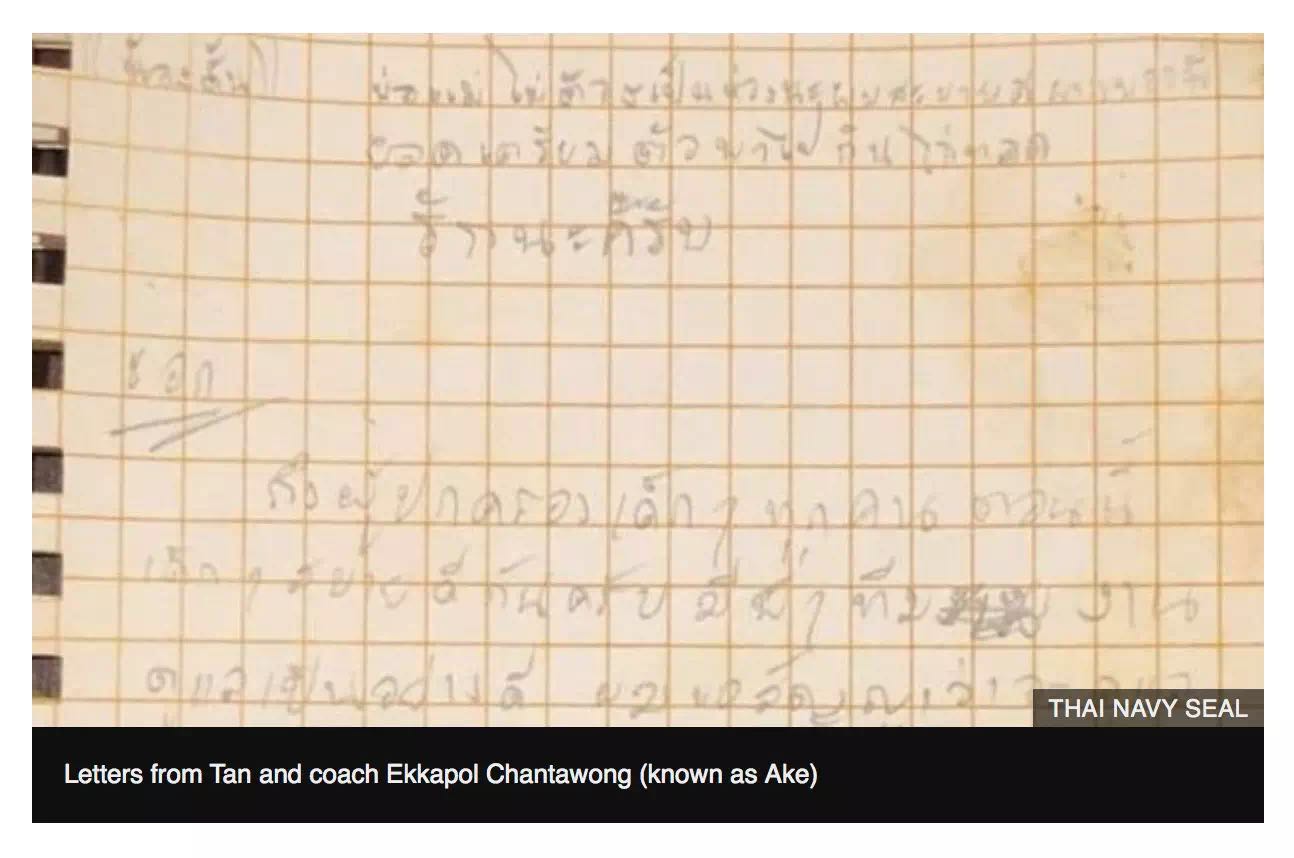 (น้องตั้น)
พ่อแม่ ไม่ต้องเป็นห่วงนะผมสบายดี
ยอดเตรียมตัวพาไปกินไก่ทอด
ด้วยนะครับ
เอก
ถึงผู้ปกครองเด็กๆทุกคน ตอนนี้
เด็กๆ สบายดีกันครับ มีพี่ๆทีม งาน
ดูแลเป็นอย่างดี ผมขอสัญญาว่าจะ
THAI NAVY SEAL
Letters from Tan and coach Ekkapol Chantawong (known as Ake)